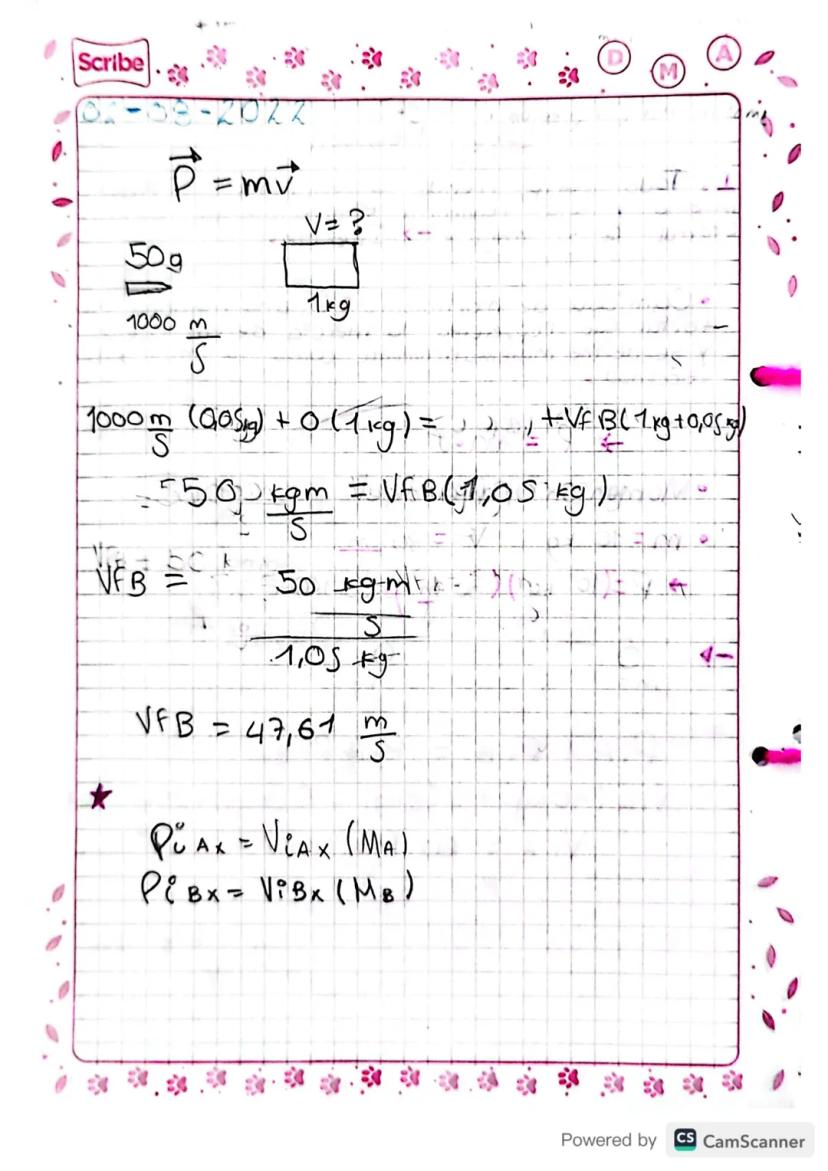 Scribe D M A
02-08-2022
P⃗ = mv⃗
V = ?
50g
1kg
1000 m/s
1000 m/s (0,05kg) + 0 (1kg) = + VfB (1kg+0,05kg)
50 kgm/s = VfB (1,05 kg)
VfB = 50 kg-m/s / 1,05 kg
VfB = 47,61 m/s
★
Pi Ax = ViAx (MA)
Pi Bx = ViBx (MB)
Powered by CS CamScanner